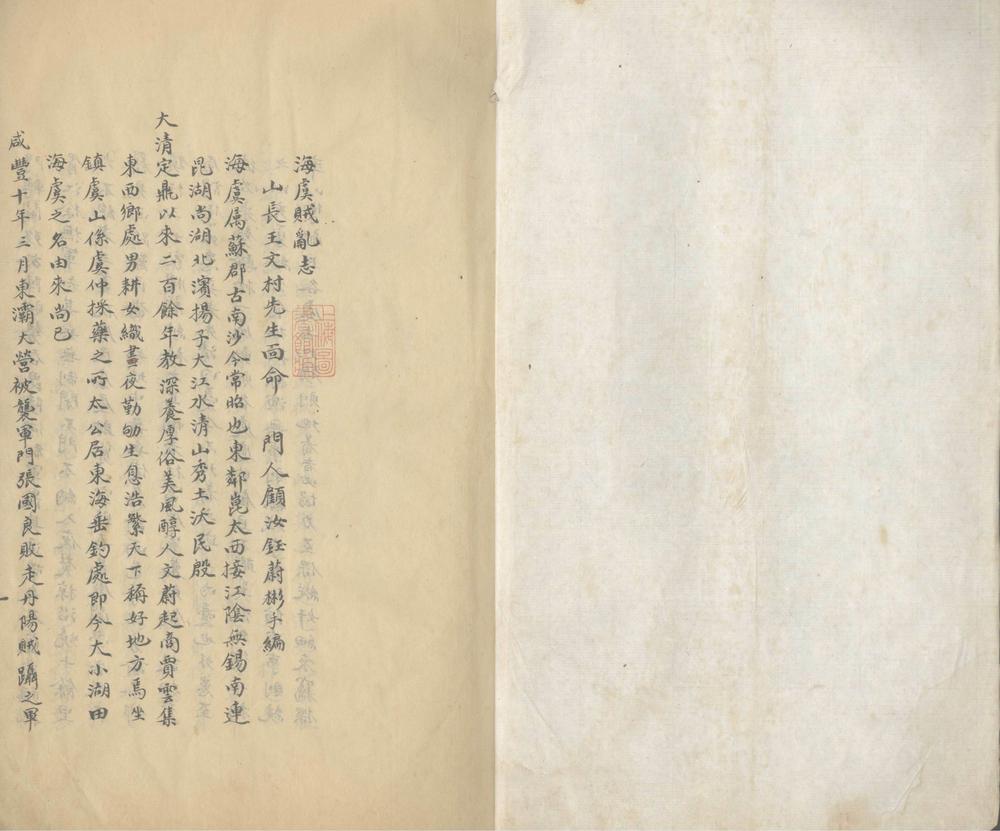 海虞賊亂志
山長王文村先生面命　門人顧汝鈺蔚彬手編
海虞属蘇郡古南沙今常昭也東鄰崑太西接江陰無錫南連
毘湖尚湖北濱揚子大江水清山秀土沃民殷
大清定鼎以來二百餘年教深養厚俗美風醇人文蔚起商賈雲集
東西鄉處男耕女織晝夜勤劬生息浩繁天下稱好地方焉坐
鎮虞山係虞仲採藥之所太公居東海垂釣處即今大小湖田
海虞之名由來尚已
咸豐十年三月東灞大營被襲軍門張國良敗走丹陽賊躡之軍
上海圖